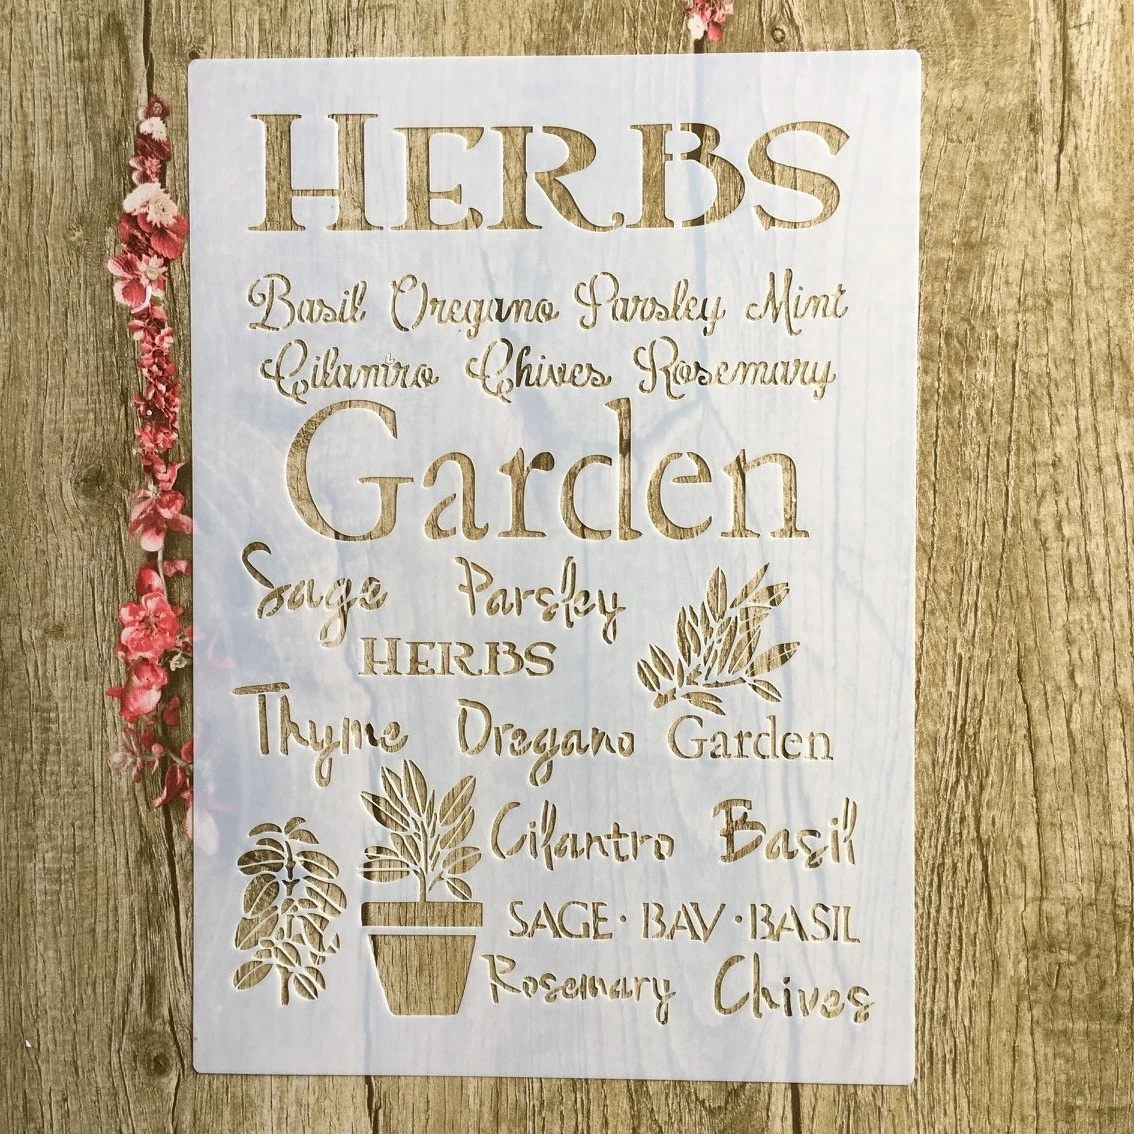 HERBS
Basil Oregano Parsley Mint
Cilantro Chives Rosemary
Garden
Sage Parsley
HERBS
Thyme Oregano Garden
Cilantro Basil
SAGE · BAY · BASIL
Rosemary Chives